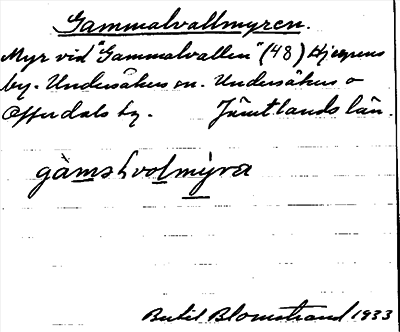 Gammalvallmyren.
Myr vid "Gammalvallen" (48) Hjerpens
by. Undersåkers sn. Undersåkers o
Offerdals tg. Jämtlands län.
gàmshvolmỳra
Bertil Blomstrand 1933